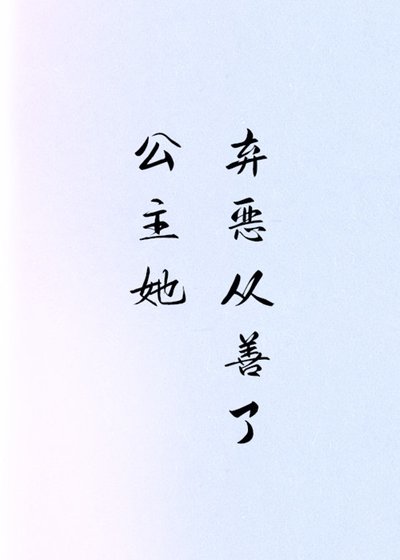 公主她
弃恶从善了